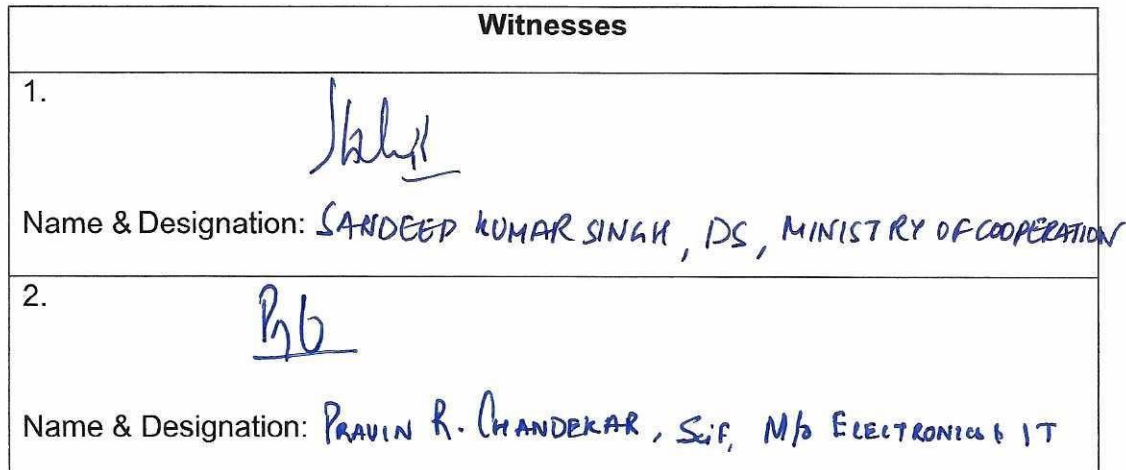 Witnesses
1.
Name & Designation: SANDEEP KUMAR SINGH, DS, MINISTRY OF COOPERATION
2.
Name & Designation: PRAVIN R. CHANDEKAR, Sci F, M/o ELECTRONICS & IT